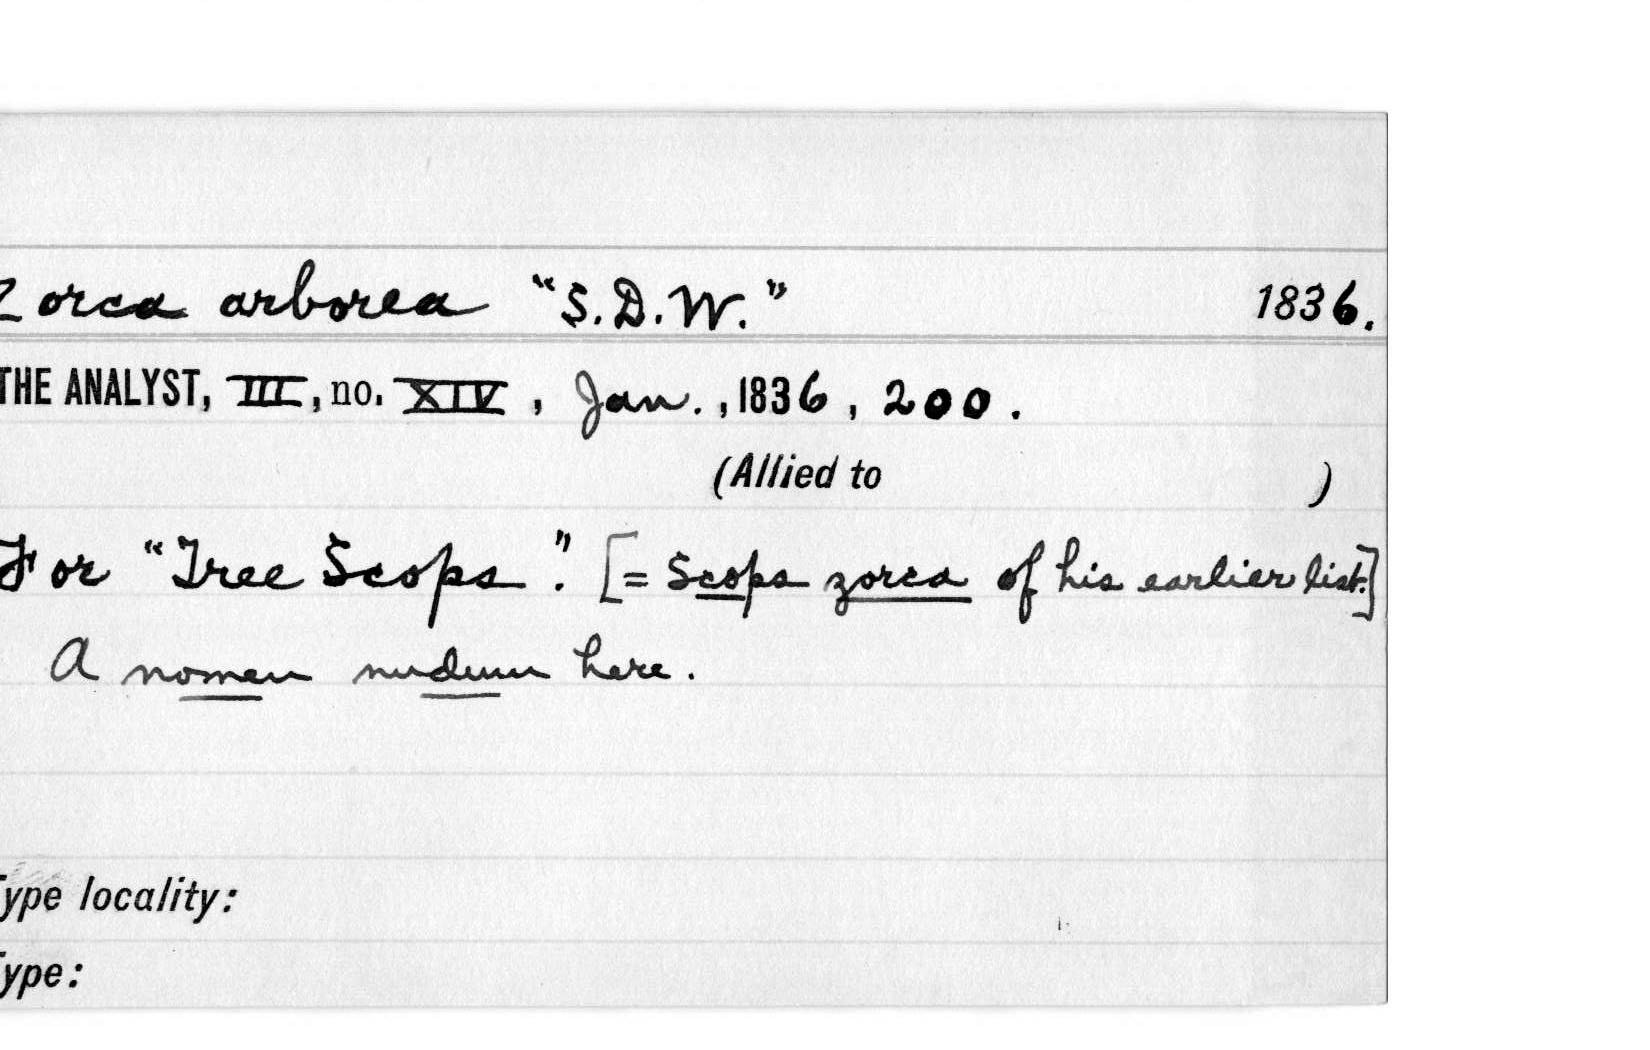 Zorca arborea "S.D.W." 1836.
THE ANALYST, III, no. XIV, Jan., 1836, 200.
(Allied to )
For "Tree Scops". [= Scops zorca of his earlier list.]
A nomen nudum here.
Type locality:
Type: